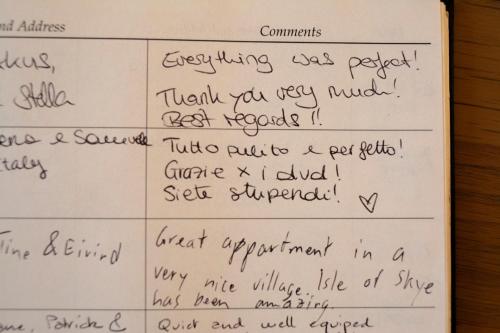 nd Address Comments
rkus, Everything was perfect!
Stella Thank you very much!
Best regards!!
ena e Samuele Tutto pulito e perfetto!
Italy Grazie x i dvd!
Siete stupendi!
tine & Eivind Great appartment in a
very nice village. Isle of Skye
has been amazing.
Patrick & Quiet and well equiped